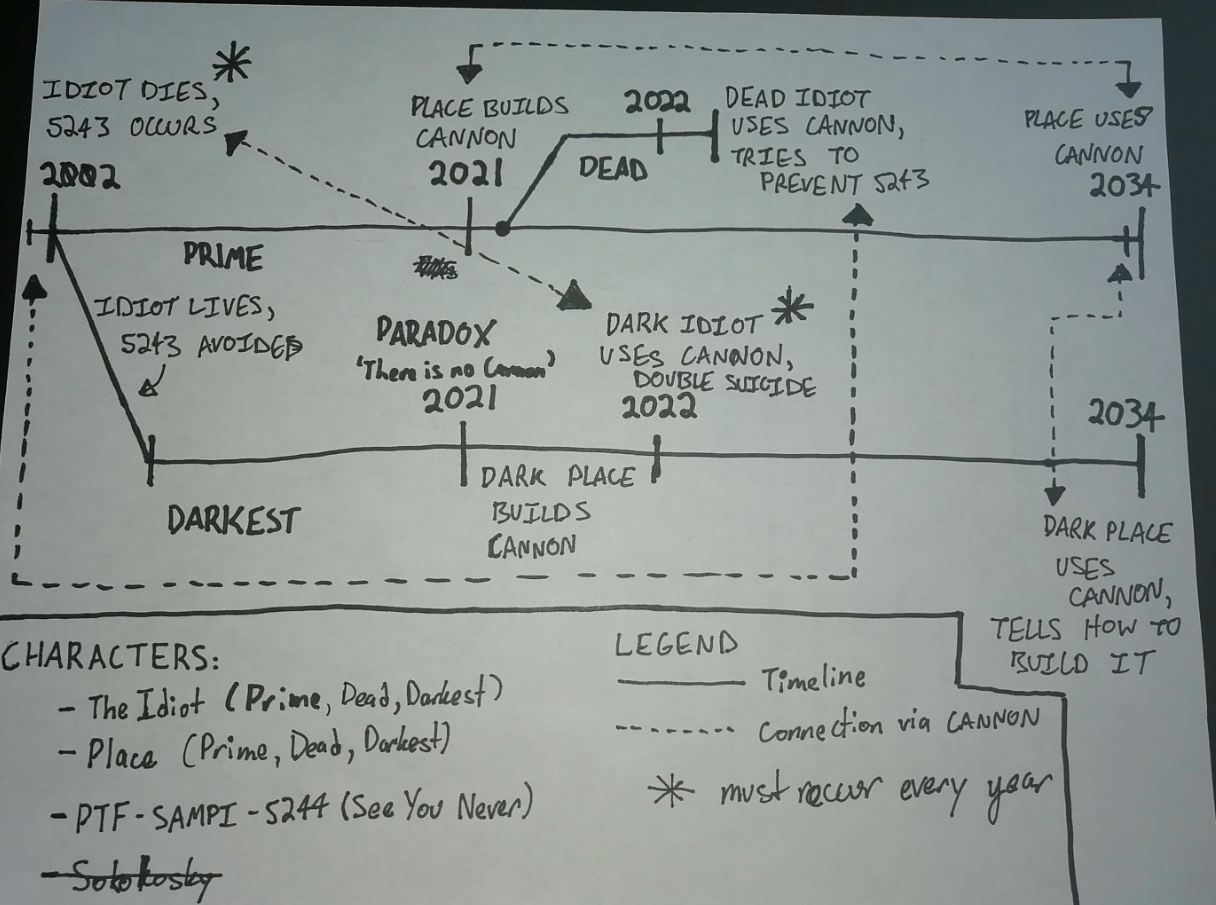 IDIOT DIES,
5243 OCCURS
2002
PLACE BUILDS
CANNON
2021
2022
DEAD
DEAD IDIOT
USES CANNON,
TRIES TO
PREVENT 5243
PLACE USES
CANNON
2034
PRIME
IDIOT LIVES,
5243 AVOIDED
PARADOX
'There is no Cannon'
2021
DARK IDIOT
USES CANNON,
DOUBLE SUICIDE
2022
2034
DARKEST
DARK PLACE
BUILDS
CANNON
DARK PLACE
USES
CANNON,
TELLS HOW TO
BUILD IT
CHARACTERS:
- The Idiot (Prime, Dead, Darkest)
- Place (Prime, Dead, Darkest)
- PTF-SAMPI-5244 (See You Never)
- Solokosky
LEGEND
Timeline
Connection via CANNON
* must reccur every year